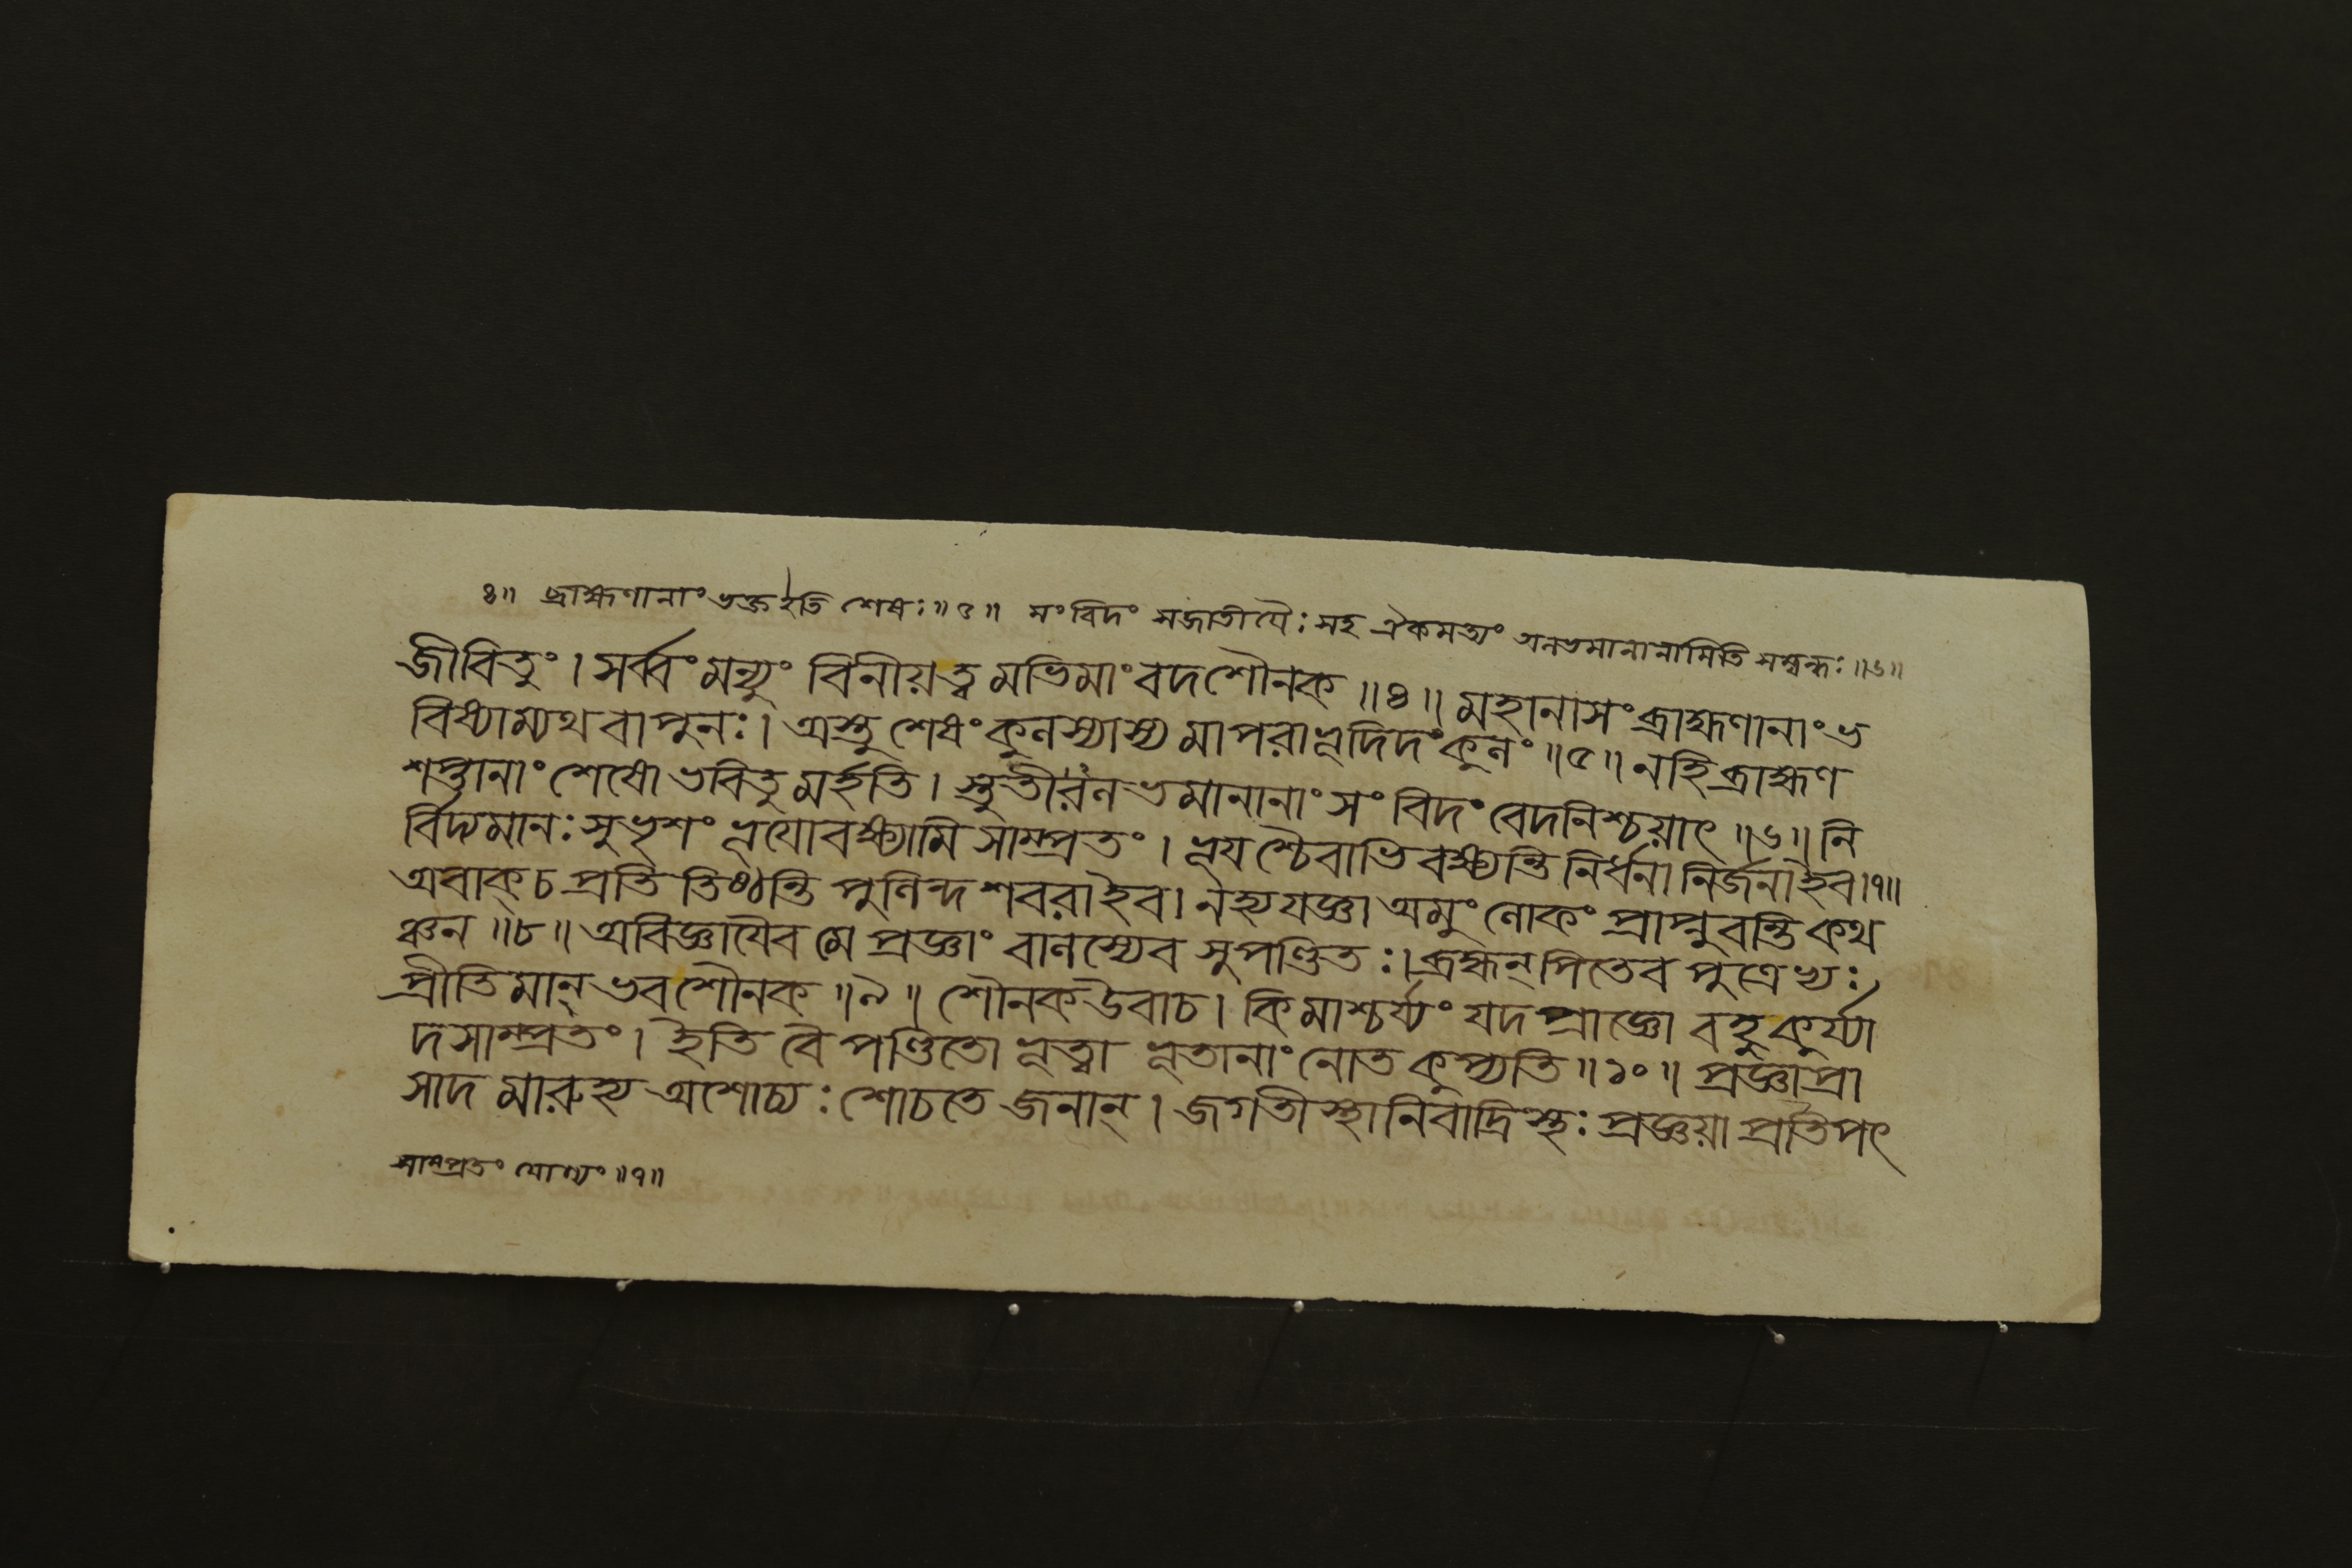 ৪॥ ব্রাহ্মণানাং ভক্ত ইতি শেষঃ॥৫॥ সংবিদং সজাতীযৈঃ সহ ঐকমত্যং অলভমানানামিতি সম্বন্ধঃ॥৬॥
জীবিতুং। সর্ব্বং মন্যুং বিনীয়ত্বমভিমাংবদশৌনক॥৪॥ মহানাসং ব্রাহ্মণানাং ভ
বিষ্যাম্যথবাপুনঃ। অস্তু শেষং কুলস্যাস্য মাপরাভূদিদং কুলং॥৫॥ নহিব্রাহ্মণ
শপ্তানাং শেষো ভবিতুমর্হতি। স্তুতীরলভমানানাং সংবিদং বেদনিশ্চয়াৎ॥৬॥ নি
র্বিদ্যমানঃ সুভৃশং ভূযোবক্ষ্যামি সাম্প্রতং। ভূযশ্চৈবাভিবক্ষ্যন্তি নির্ধনা নির্জনাইব।৭॥
অবাক্ চ প্রতি তিষ্ঠন্তি পুলিন্দ শবরাইব। নহ্যযজ্ঞা অমুং লোকং প্রাপ্নুবন্তি কথ
ঞ্চন॥৮॥ অবিজ্ঞাযৈব মে প্রজ্ঞাং বালস্যেব সুপণ্ডিতঃ। ব্রহ্মন্ পিতেব পুত্রেভ্যঃ
প্রীতিমান্ ভবশৌনক॥৯॥ শৌনকউবাচ। কিমাশ্চর্য্যং যদপ্রাজ্ঞো বহুকুর্য্যা
দসাম্প্রতং। ইতি বৈ পণ্ডিতো ভূত্বা ভূতানাং নোত কুপ্যতি॥১০॥ প্রজ্ঞাপ্রা
সাদ মারুহ্য অশোচ্যঃ শোচতে জনান্। জগতীস্থানিবাদ্রিস্থঃ প্রজ্ঞয়া প্রতিপৎ
সাম্প্রতং যোগ্যং॥৭॥